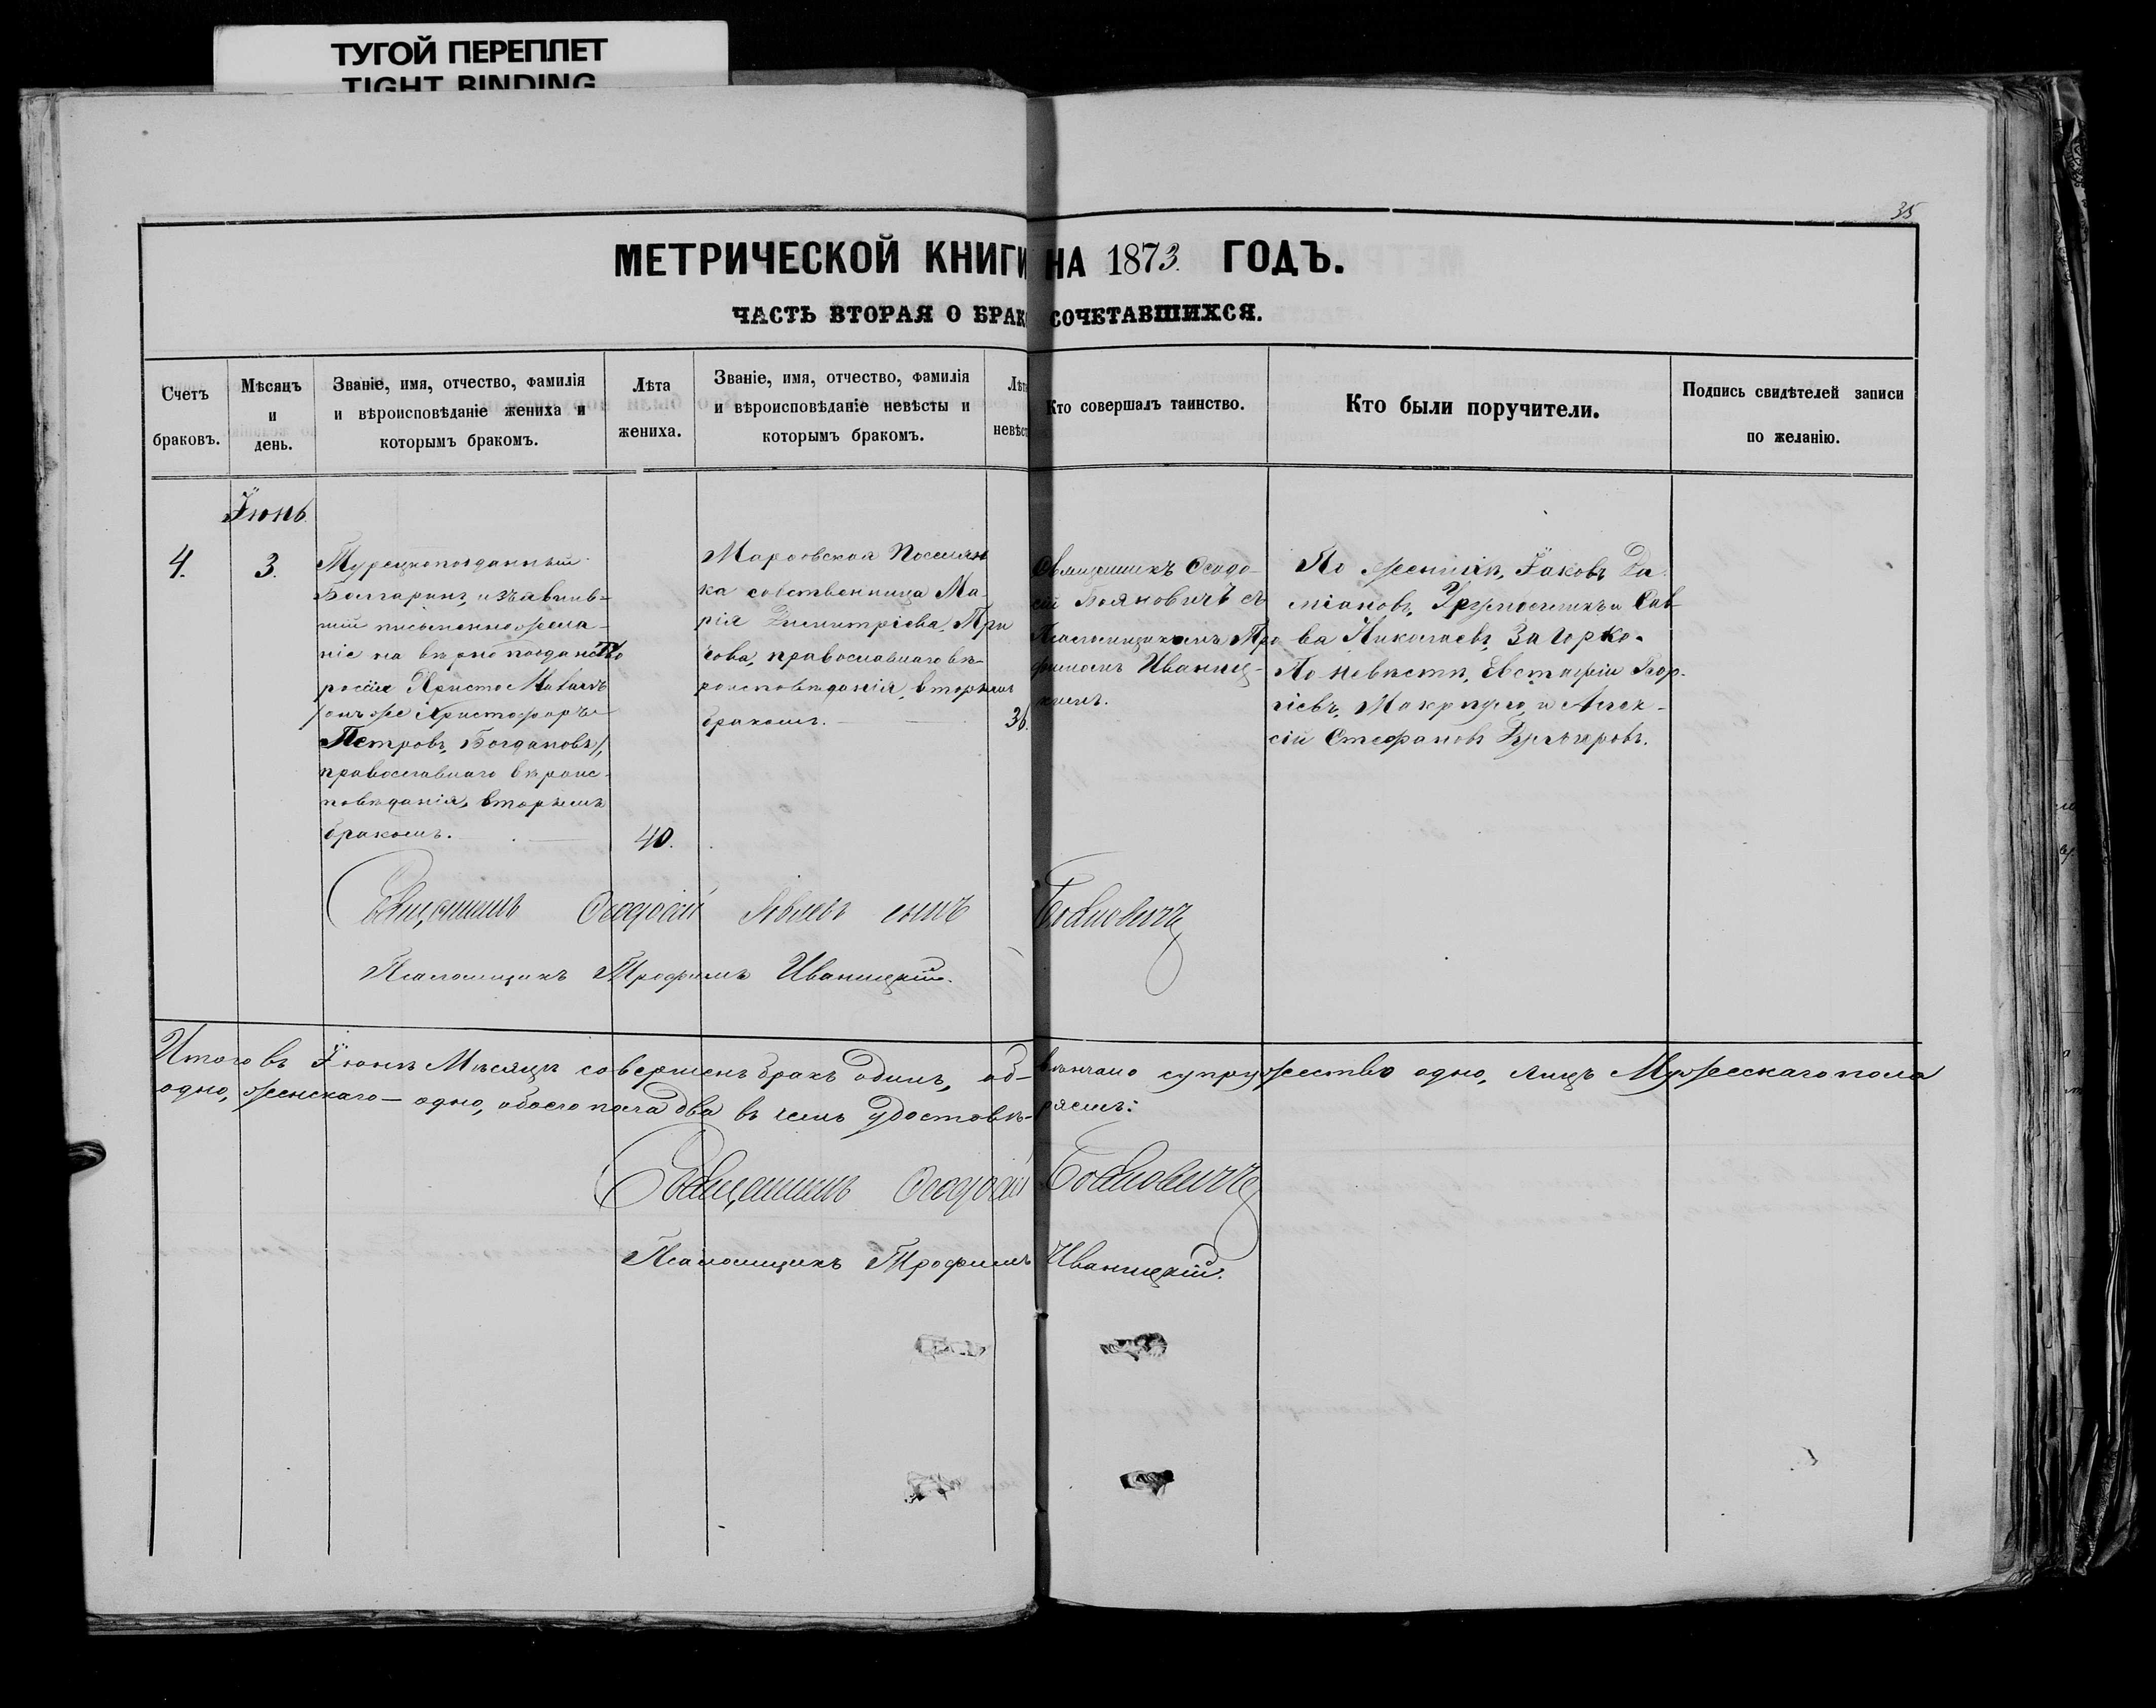 ТУГОЙ ПЕРЕПЛЕТ
TIGHT BINDING
35
МЕТРИЧЕСКОЙ КНИГИ НА 1873. ГОДЪ.
ЧАСТЬ ВТОРАЯ О БРАКОСОЧЕТАВШИХСЯ.
Счетъ
браковъ.
Мѣсяцъ
и
день.
Званіе, имя, отчество, фамилія
и вѣроисповѣданіе жениха и
которымъ бракомъ.
Лѣта
жениха.
Званіе, имя, отчество, фамилія
и вѣроисповѣданіе невѣсты и
которымъ бракомъ.
Лѣта
невѣст
Кто совершалъ таинство.
Кто были поручители.
Подпись свидѣтелей записи
по желанію.
Іюнь
4.
3.
Турецкоподданный
Болгаринъ, изъявив-
шій письменно жела-
ніе на вѣрно подданство
россіи Христо
/онъ же Христофоръ/
Петровъ, Богдановъ/,
православнаго вѣроис-
повѣданія, вторымъ
бракомъ.
40.
Поселян
ка собственница Ма-
рія Димитріева,
православнаго вѣ-
роисповѣданія, вторымъ
бракомъ.
36.
Священникъ Ѳеодо-
сій Бояновичъ съ
Псаломщикомъ Тро
фимомъ Иваниц-
кимъ.
По женихѣ, Іаковъ Да
міановъ, и Сав-
ва Николаевъ, Загорко.
По невѣстѣ, Евстафій Геор-
гіевъ, и Алек-
сій Стефановъ
Священникъ Ѳеодосій сынъ Бояновичъ
Псаломщикъ Трофимъ Иваницкій.
Итого въ Іюнѣ Мѣсяцѣ совершенъ бракъ одинъ, об-вѣнчано супружество одно, лицъ Мужескаго пола
одно, женскаго – одно, обоего пола два въ чемъ удостовѣ-ряемъ:
Священникъ Ѳеодосій Бояновичъ
Псаломщикъ Трофимъ Иваницкій.